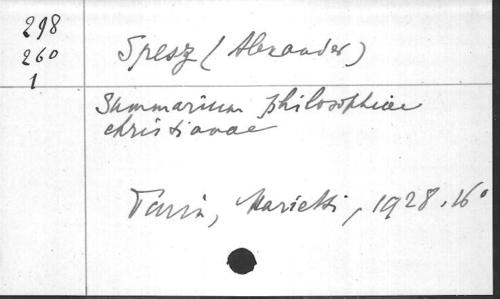 298
260
1
Spesz (Alexander)
Summarium philosophiae
christianae
Turin, Marietti, 1928. 16°